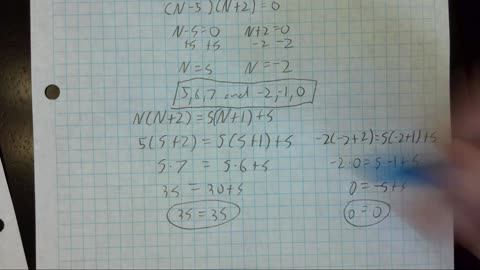 (N-5)(N+2)=0
N-5=0 N+2=0
+5 +5 -2 -2
N=5 N=-2
5,6,7 and -2,-1,0
N(N+2)=5(N+1)+5
5(5+2)=5(5+1)+5 -2(-2+2)=5(-2+1)+5
5·7 = 5·6+5 -2·0=5·-1+5
35 = 30+5 0=-5+5
35=35 0=0